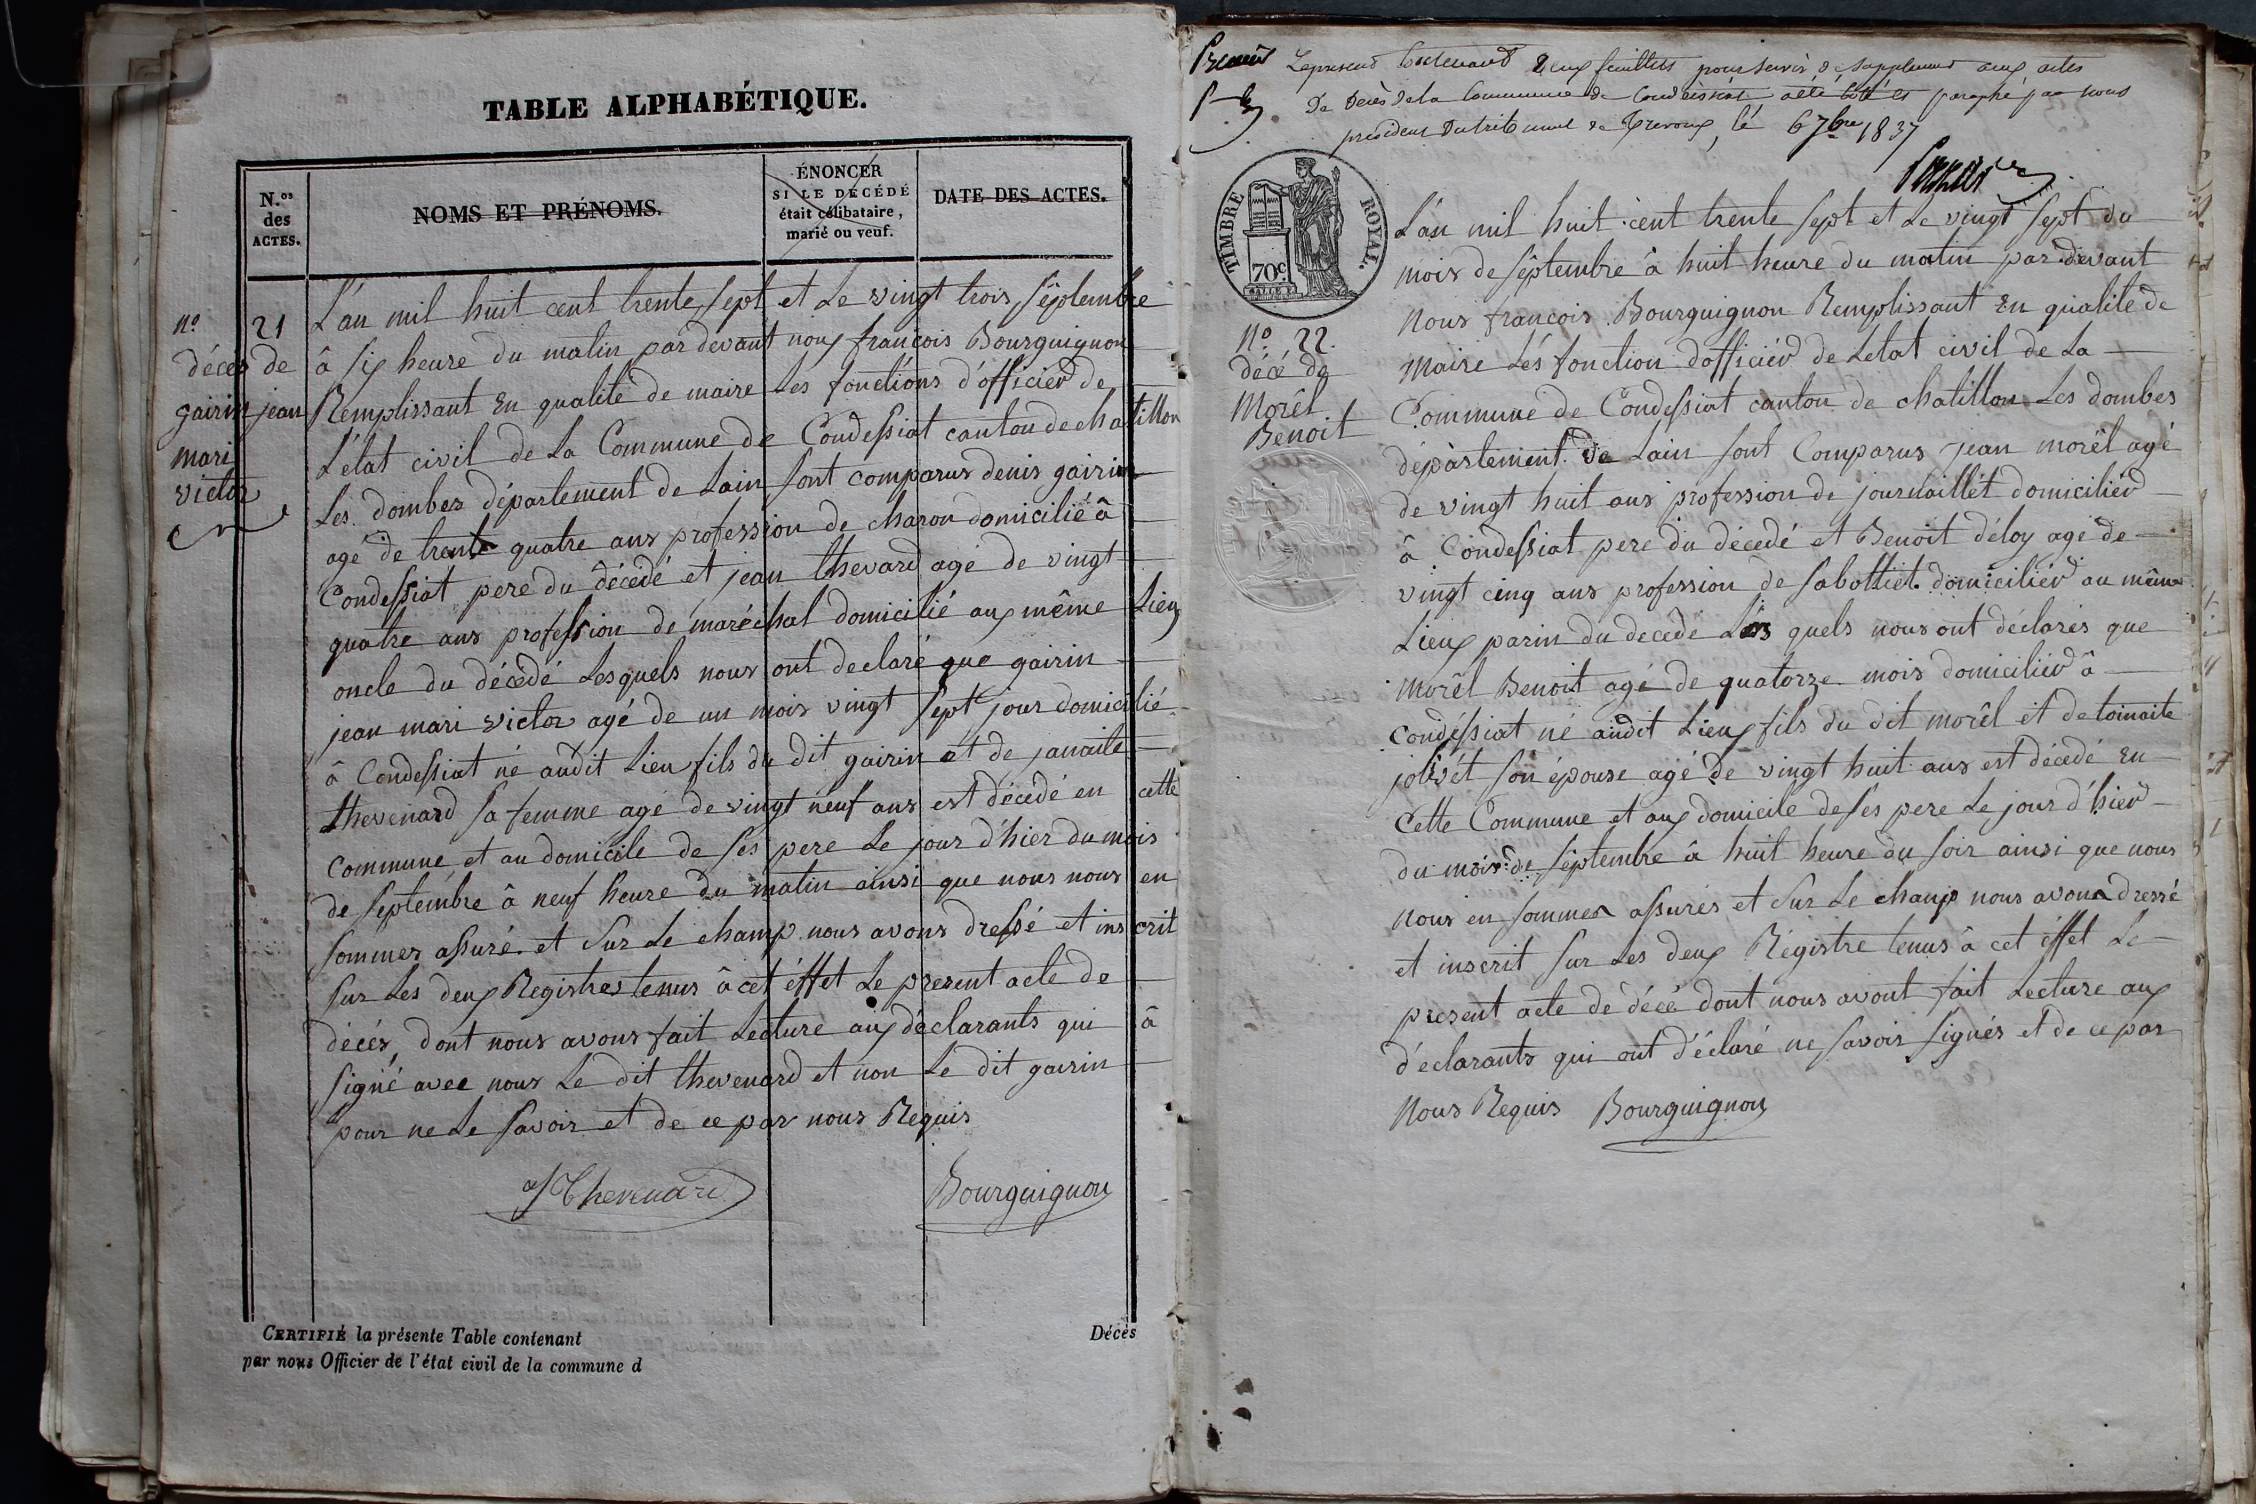 TABLE ALPHABÉTIQUE.
N.os
des
ACTES.
NOMS ET PRÉNOMS.
ÉNONCER
SI LE DÉCÉDÉ
était célibataire,
marié ou veuf.
DATE DES ACTES.
no 21
décès de
gairin jean
mari
victor
L'an mil huit cent trente sept et Le vingt trois septembre
â six heure du matin par devant nous françois Bourguignon
Remplissant En qualité de maire Les fonctions d'officier de
L'état civil de La Commune de Condessiat canton de chatillon
Les dombes département de Lain sont comparus denis gairin
agé de trente quatre ans profession de charon domicilié â
Condessiat pere du décédé et jean thevard agé de vingt
quatre ans profession de maréchal domicilié aux même Lieu
oncle du décédé Lesquels nous ont declaré que gairin
jean mari victor agé de un mois vingt sept jour domicilié
â Condessiat né audit Lieu fils du dit gairin et de janaite
thevenard sa femme agé de vingt neuf ans est décédé en cette
Commune et au domicile de ses pere Le jour d'hier du mois
de septembre â neuf heure du matin ainsi que nous nous en
sommes assuré. et sur Le champ nous avons dressé et inscrit
sur Les deux Registres tenus â cet éffet Le present acte de
décés, dont nous avons fait Lecture aux déclarants qui â
signé avec nous Le dit thevenard et non Le dit gairin
pour ne Le savoir et de ce par nous Requis
Thevenard Bourguignon
CERTIFIÉ la présente Table contenant
par nous Officier de l'état civil de la commune d
Décès
Premier
Le present contenant deux feuillets pour servir de supplement aux actes
De Décès de la Commune de Condeissiat a été coté et paraphé par nous
président du tribunal de Trevoux, le 6 7bre 1837
TIMBRE ROYAL.
70c
No 22.
décé de
Morêl
Benoit
L'an mil huit cent trente sept et Le vingt sept du
mois de septembre â huit heure du matin par devant
Nous francois Bourguignon Remplissant En qualité de
Maire Lés fonction d'officiér de Létat civil de La
Commune de Condessiat canton de chatillon Les dombes
département de Lain sont Comparus jean morêl agé
de vingt huit ans profession de journaillét domiciliér
â Condessiat pere du décédé et Benoit déloy agé de
vingt cinq ans profession de sabottiet domiciliér au même
Lieux parin du decédé Les quels nous ont déclarés que
Morêl Benoit agé de quatorze mois domiciliér â
condéssiat né audit Lieux fils du dit morêl et de toinaite
jolivét son épouse agé de vingt huit ans est décédé En
Cette Commune et aux domicile de ses pere Le jour d'hiér
du mois de septembre â huit heure du soir ainsi que nous
nous en sommes assurés et sur Le champ nous avons dressé
et inscrit sur Les deux Régistre tenus â cet éffet Le
present acte de décé dont nous avont fait Lecture aux
déclarants qui ont d'éclaré ne savoir signés et de ce par
Nous Requis Bourguignon